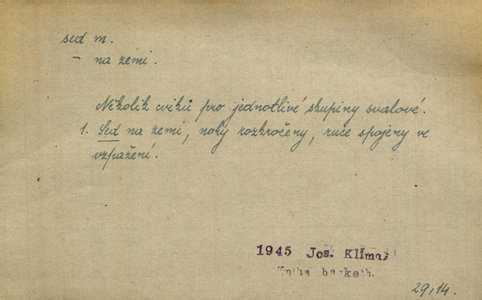 sed m.
– na zemi.
Několik cviků pro jednotlivé skupiny svalové.
1. Sed na zemi, nohy rozkročeny, ruce spojeny ve
vzpažení.
1945 Jos. Klíma,
Kniha basketb.
29,14.